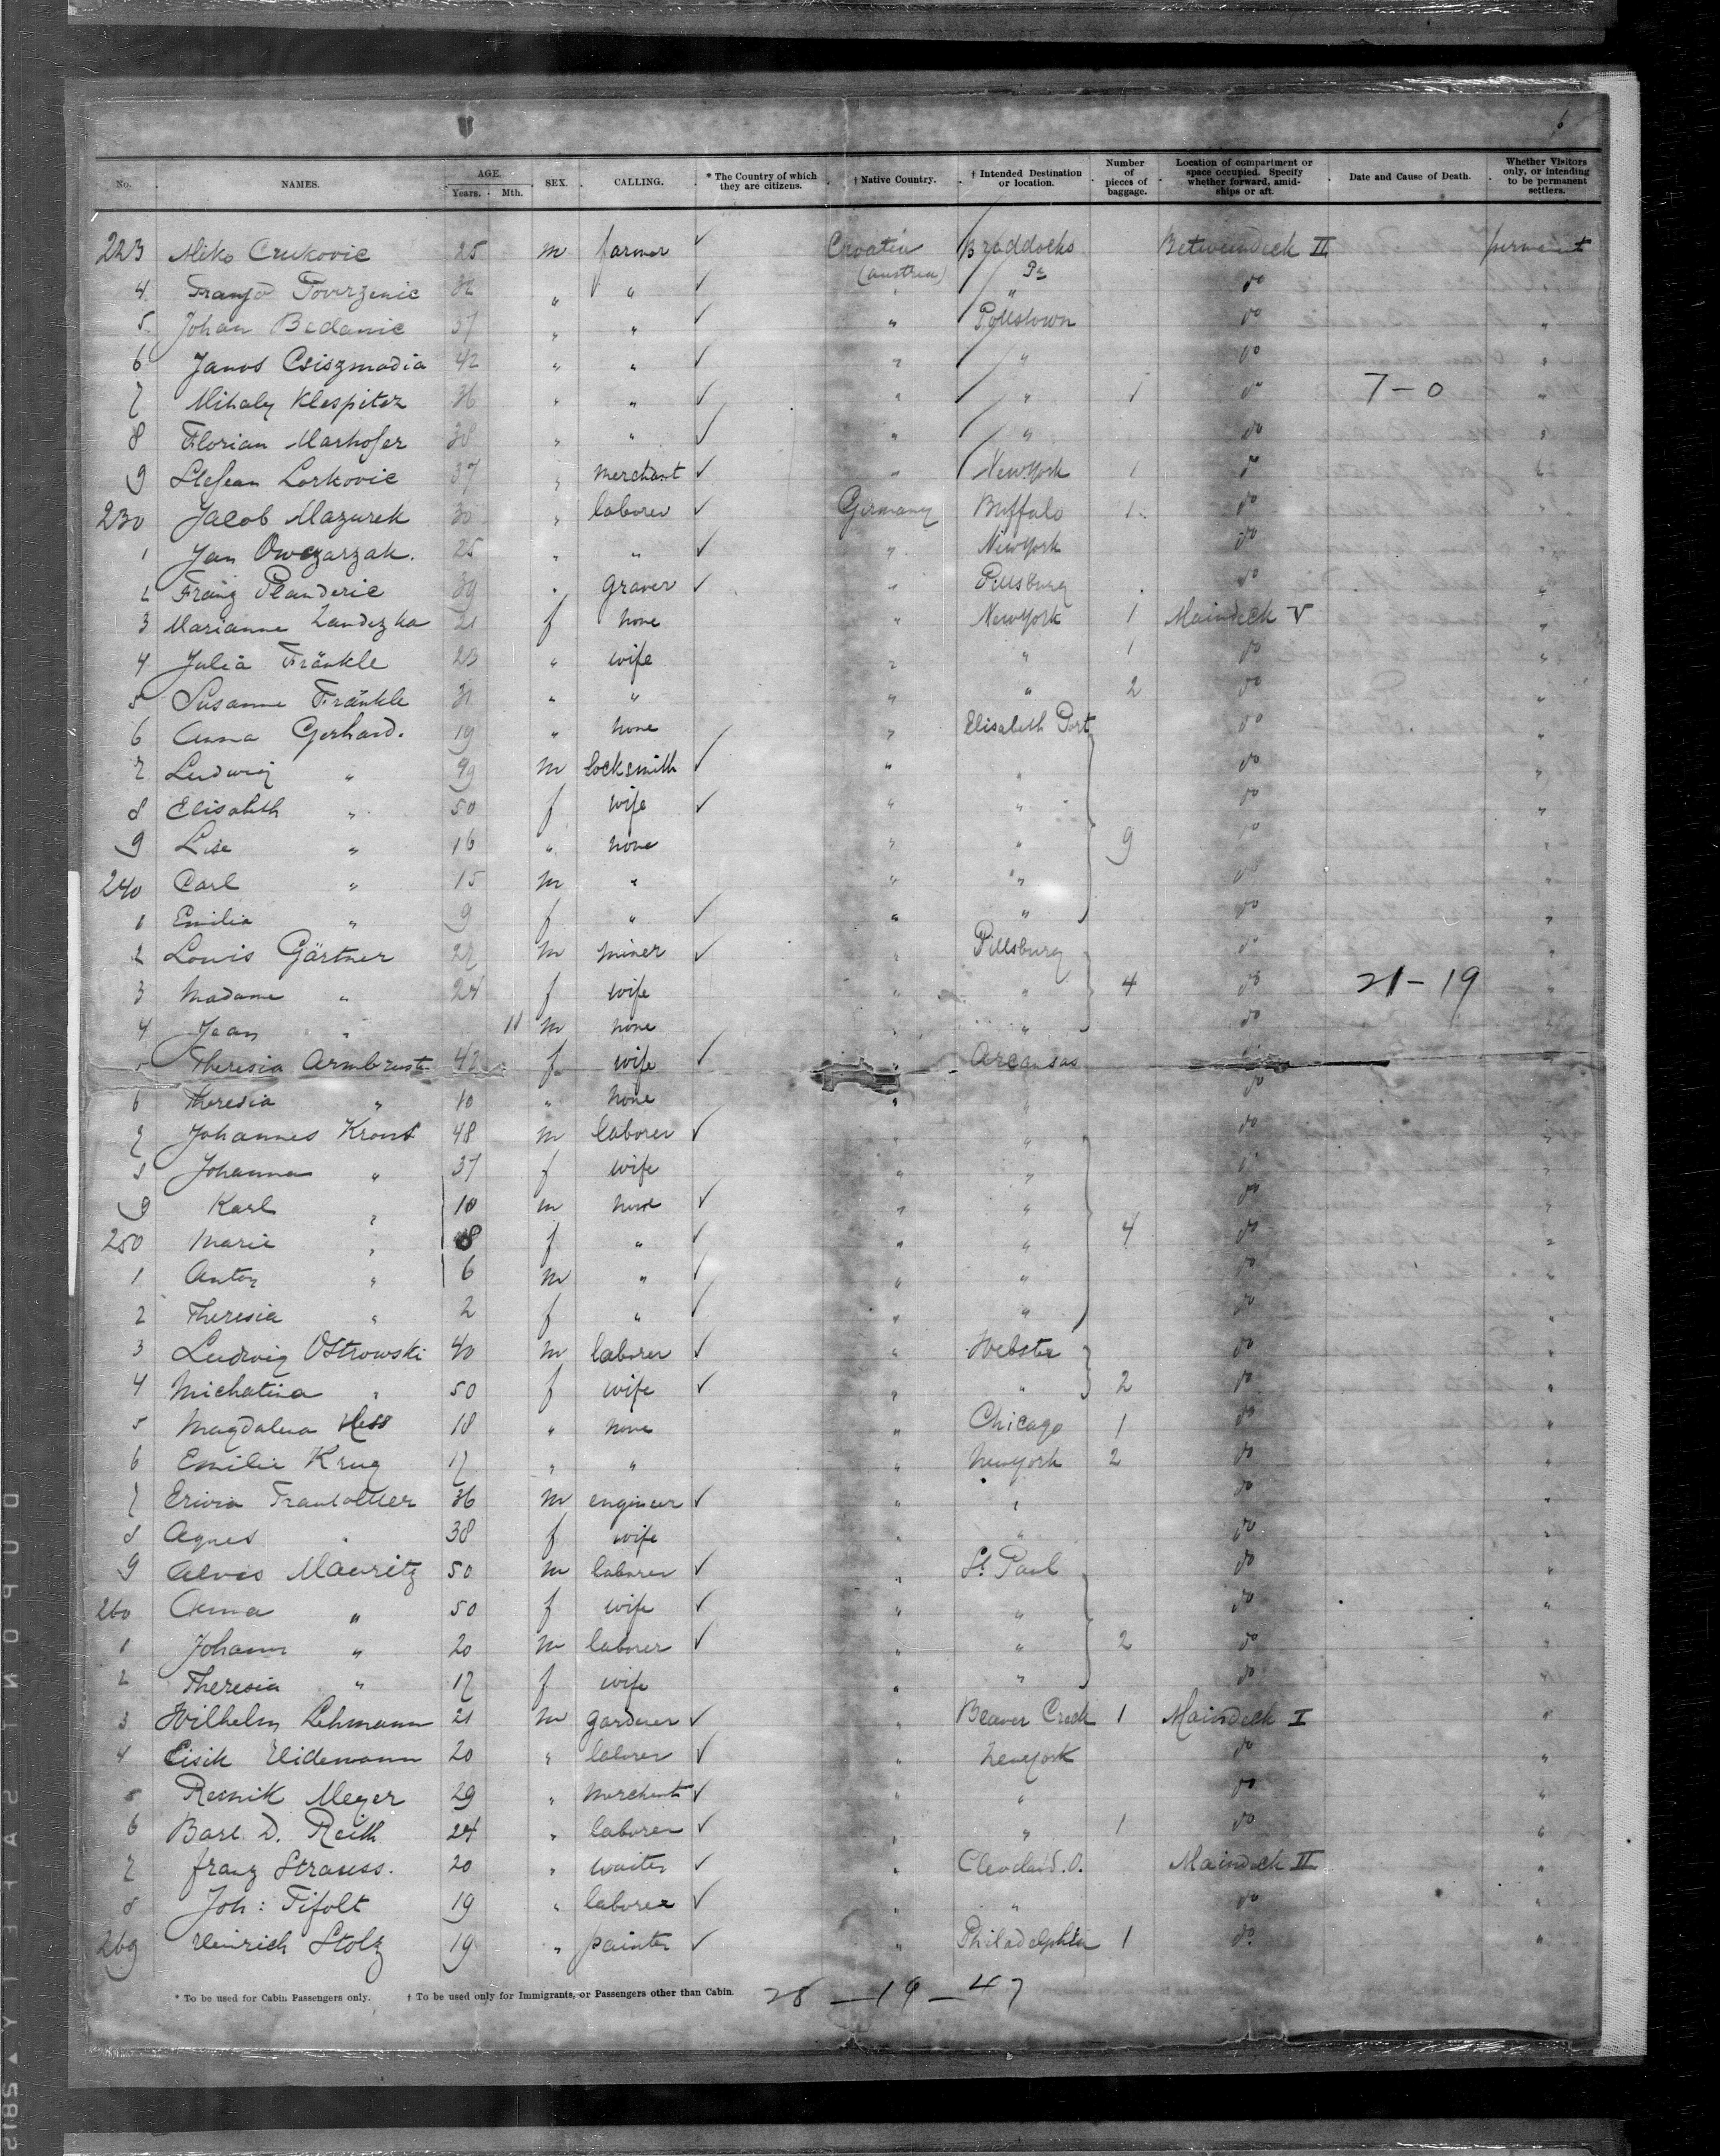 6
No. NAMES. AGE. Years. Mth. SEX. CALLING. * The Country of which they are citizens. † Native Country. † Intended Destination or location. Number of pieces of baggage. Location of compartment or space occupied. Specify whether forward, amidships or aft. Date and Cause of Death. Whether Visitors only, or intending to be permanent settlers.
223 Miko Crukovic 25 m farmer ✓ Croatia (austria) Braddocks Pa Betweendeck II permanent
4 Franjo Povrzenic 32 " " ✓ " " do "
5 Johan Bedanic 37 " " ✓ " Pottstown do "
6 Janos Csiszmadia 42 " " ✓ " " do "
7 Mihaly Klespitz 36 " " ✓ " " 1 do 7-0 "
8 Florian Marhofer 38 " " ✓ " " do "
9 Stefean Lorkovic 37 " merchant ✓ " New York 1 do "
230 Jacob Mazurek 30 " laborer ✓ Germany Buffalo 1 do "
1 Jan Owczarzak. 25 " " ✓ " New York do "
2 Franz Planderic 39 " graver ✓ " Pittsburg do "
3 Marianne Landezka 21 f none " New York 1 Maindeck V "
4 Julia Fränkle 23 " wife " " 1 do "
5 Susanne Fränkle 31 " " " " 2 do "
6 Anna Gerhard. 19 " none " Elisabeth Port do "
7 Ludwig " 49 m locksmith ✓ " " do "
8 Elisabeth " 50 f wife ✓ " " do "
9 Lise " 16 " none " " 9 do "
240 Carl " 15 m " " " do "
1 Emilia " 9 f " ✓ " " do "
2 Louis Gärtner 27 m miner ✓ " Pittsburg do "
3 Madame " 24 f wife " " 4 do 21-19 "
4 Jean " 11 m none " " do "
5 Theresia Armbrust 42 f wife ✓ " Arcansas
6 Theresia " 10 " none " " do
7 Johannes Kronst 48 m laborer ✓ " " do "
8 Johanna " 37 f wife " " do "
9 Karl " 10 m none ✓ " " do "
250 Marie " 8 f " ✓ " " 4 do "
1 Anton " 6 m " ✓ " " do "
2 Theresia " 2 f " ✓ " " do "
3 Ludwig Ostrowski 40 m laborer ✓ " Webster do "
4 Michalina " 50 f wife ✓ " " 2 do "
5 Magdalena Hess 18 " none " Chicago 1 do "
6 Emilie Krug 17 " " " New York 2 do "
7 Erwin Trautvetter 36 m engineer ✓ " " do "
8 Agnes " 38 f wife " " do "
9 Alvis Mauritz 50 m laborer ✓ " St Paul do "
260 Anna " 50 f wife ✓ " " do "
1 Johann " 20 m laborer ✓ " " 2 do "
2 Theresia " 17 f wife " " do "
3 Wilhelm Lehmann 21 m gardener ✓ " Beaver Creek 1 Maindeck I "
4 Eisik Weidemann 20 " laborer ✓ " New York do "
5 Resnik Meyer 29 " merchant ✓ " " do "
6 Basl. D. Reith 24 " laborer ✓ " " 1 do "
7 Franz Strauss. 20 " waiter ✓ " Cleveland. O. Maindeck II "
8 Joh: Tifolt 19 " laborer ✓ " " do "
269 Heinrich Stolz 19 " painter ✓ " Philadelphia 1 do "
* To be used for Cabin Passengers only. † To be used only for Immigrants, or Passengers other than Cabin.
28 — 19 — 47